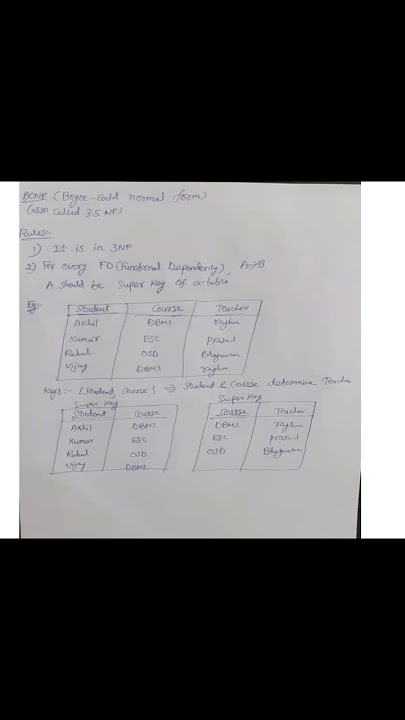 BCNF (Boyce-codd normal form)
(also called 3.5 NF)
Rules:-
1) It is in 3NF
2) For every FD (Functional Dependency), A→B
A should be Super key of a table
Eg:-
Student Course Teacher
Akhil DBMS raghu
Kumar ESC prasad
Rahul OSD Bhagwan
Vijay DBMS raghu
Keys:- {Student, Course} ⇒ Student & Course determine Teacher
Super Key Super Key
Student Course Course Teacher
Akhil DBMS DBMS raghu
Kumar ESC ESC prasad
Rahul OSD OSD Bhagwan
Vijay DBMS